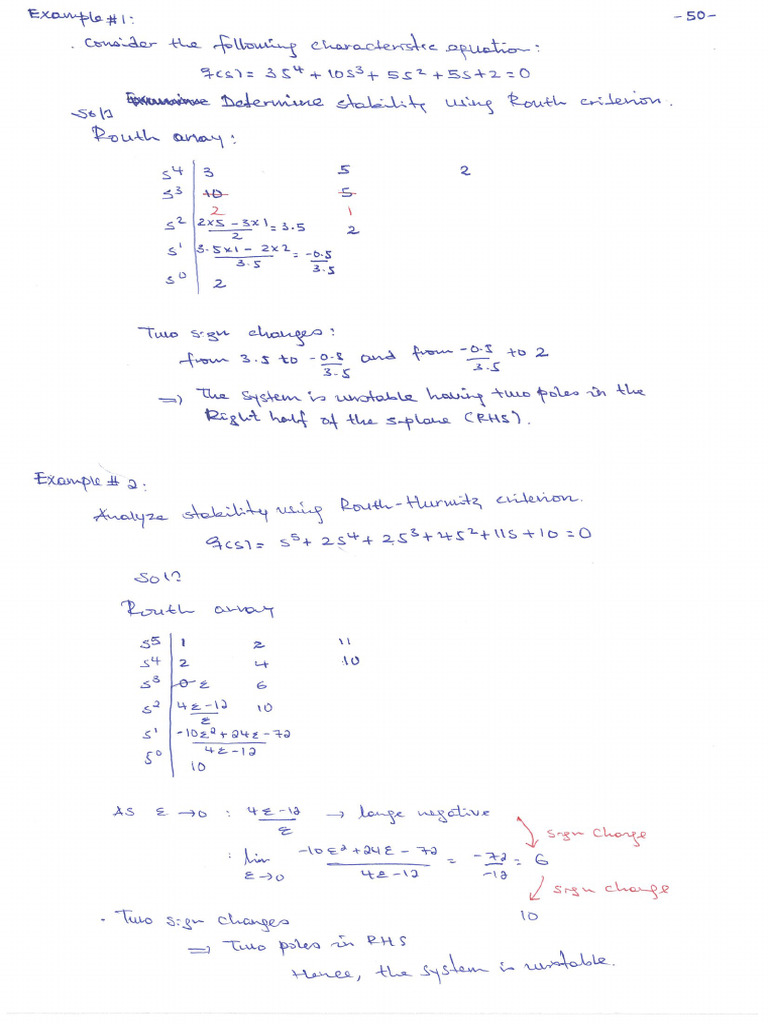 Example #1:
-50-
. Consider the following characteristic equation:
q(s) = 3s⁴ + 10s³ + 5s² + 5s + 2 = 0
Determine stability using Routh criterion.
Sol?
Routh array:
s⁴ | 3 5 2
s³ | 10 5
2 1
s² | (2×5 - 3×1)/2 = 3.5 2
s¹ | (3.5×1 - 2×2)/3.5 = -0.5/3.5
s⁰ | 2
Two sign changes:
from 3.5 to -0.5/3.5 and from -0.5/3.5 to 2
⇒ The system is unstable having two poles in the
Right half of the s-plane (RHS).
Example # 2:
Analyze stability using Routh-Hurwitz criterion.
q(s) = s⁵ + 2s⁴ + 2s³ + 4s² + 11s + 10 = 0
Sol?
Routh array
s⁵ | 1 2 11
s⁴ | 2 4 10
s³ | 0 ε 6
s² | (4ε-12)/ε 10
s¹ | (-10ε² + 24ε - 72)/(4ε-12)
s⁰ | 10
As ε → 0 : (4ε-12)/ε → large negative
sign change
: lim ε→0 (-10ε² + 24ε - 72)/(4ε-12) = -72/-12 = 6
sign change
10
. Two sign changes
⇒ Two poles in RHS
Hence, the system is unstable.